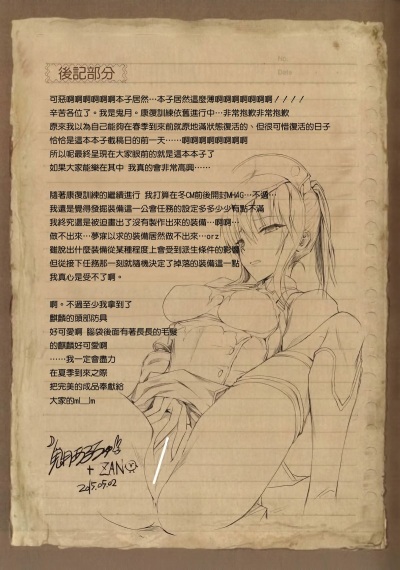 後記部分
可惡啊啊啊啊啊啊本子居然…本子居然這麼薄啊啊啊啊啊啊啊////
辛苦各位了。我是鬼月。康復訓練依舊進行中…非常抱歉非常抱歉
原來我以為自己能夠在春季到來前就原地滿狀態復活的、但很可惜復活的日子
恰恰是這本本子截稿日的前一天……啊啊啊啊啊啊啊啊
所以呢最終呈現在大家眼前的就是這本本子了
如果大家能樂在其中 我真的會非常高興……
隨著康復訓練的繼續進行 我打算在冬CM前後開封MH4G…不過…
我還是覺得發掘裝備這一公會任務的設定多多少少有點不滿
我終究還是被迫畫出了沒有製作出來的裝備…啊啊…
做不出來…夢寐以求的裝備居然做不出來…orz
雖說出什麼裝備從某種程度上會受到派生條件的影響
但從接下任務那一刻就隨機決定了掉落的裝備這一點
我真心是受不了啊。
啊。不過至少我拿到了
麒麟的頭部防具
好可愛啊 腦袋後面有著長長的毛髮
的麒麟好可愛啊
……我一定會盡力
在夏季到來之際
把完美的成品奉獻給
大家的m(__)m
+ ZAN
2015.05.02